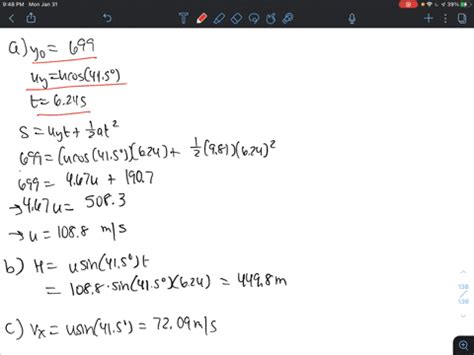 9:48 PM Mon Jan 31
39%
a) y₀ = 699
uy = ucos(41.5°)
t = 6.24s
s = uyt + ½at²
699 = (ucos(41.5°))(6.24) + ½(9.81)(6.24)²
699 = 4.67u + 190.7
→ 4.67u = 508.3
→ u = 108.8 m/s
b) H = usin(41.5°)t
= 108.8 · sin(41.5°)(6.24) = 449.8m
c) Vx = usin(41.5°) = 72.09 m/s
138
139